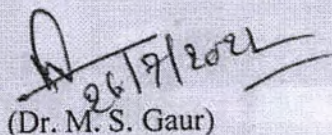 26/7/2021
(Dr. M. S. Gaur)